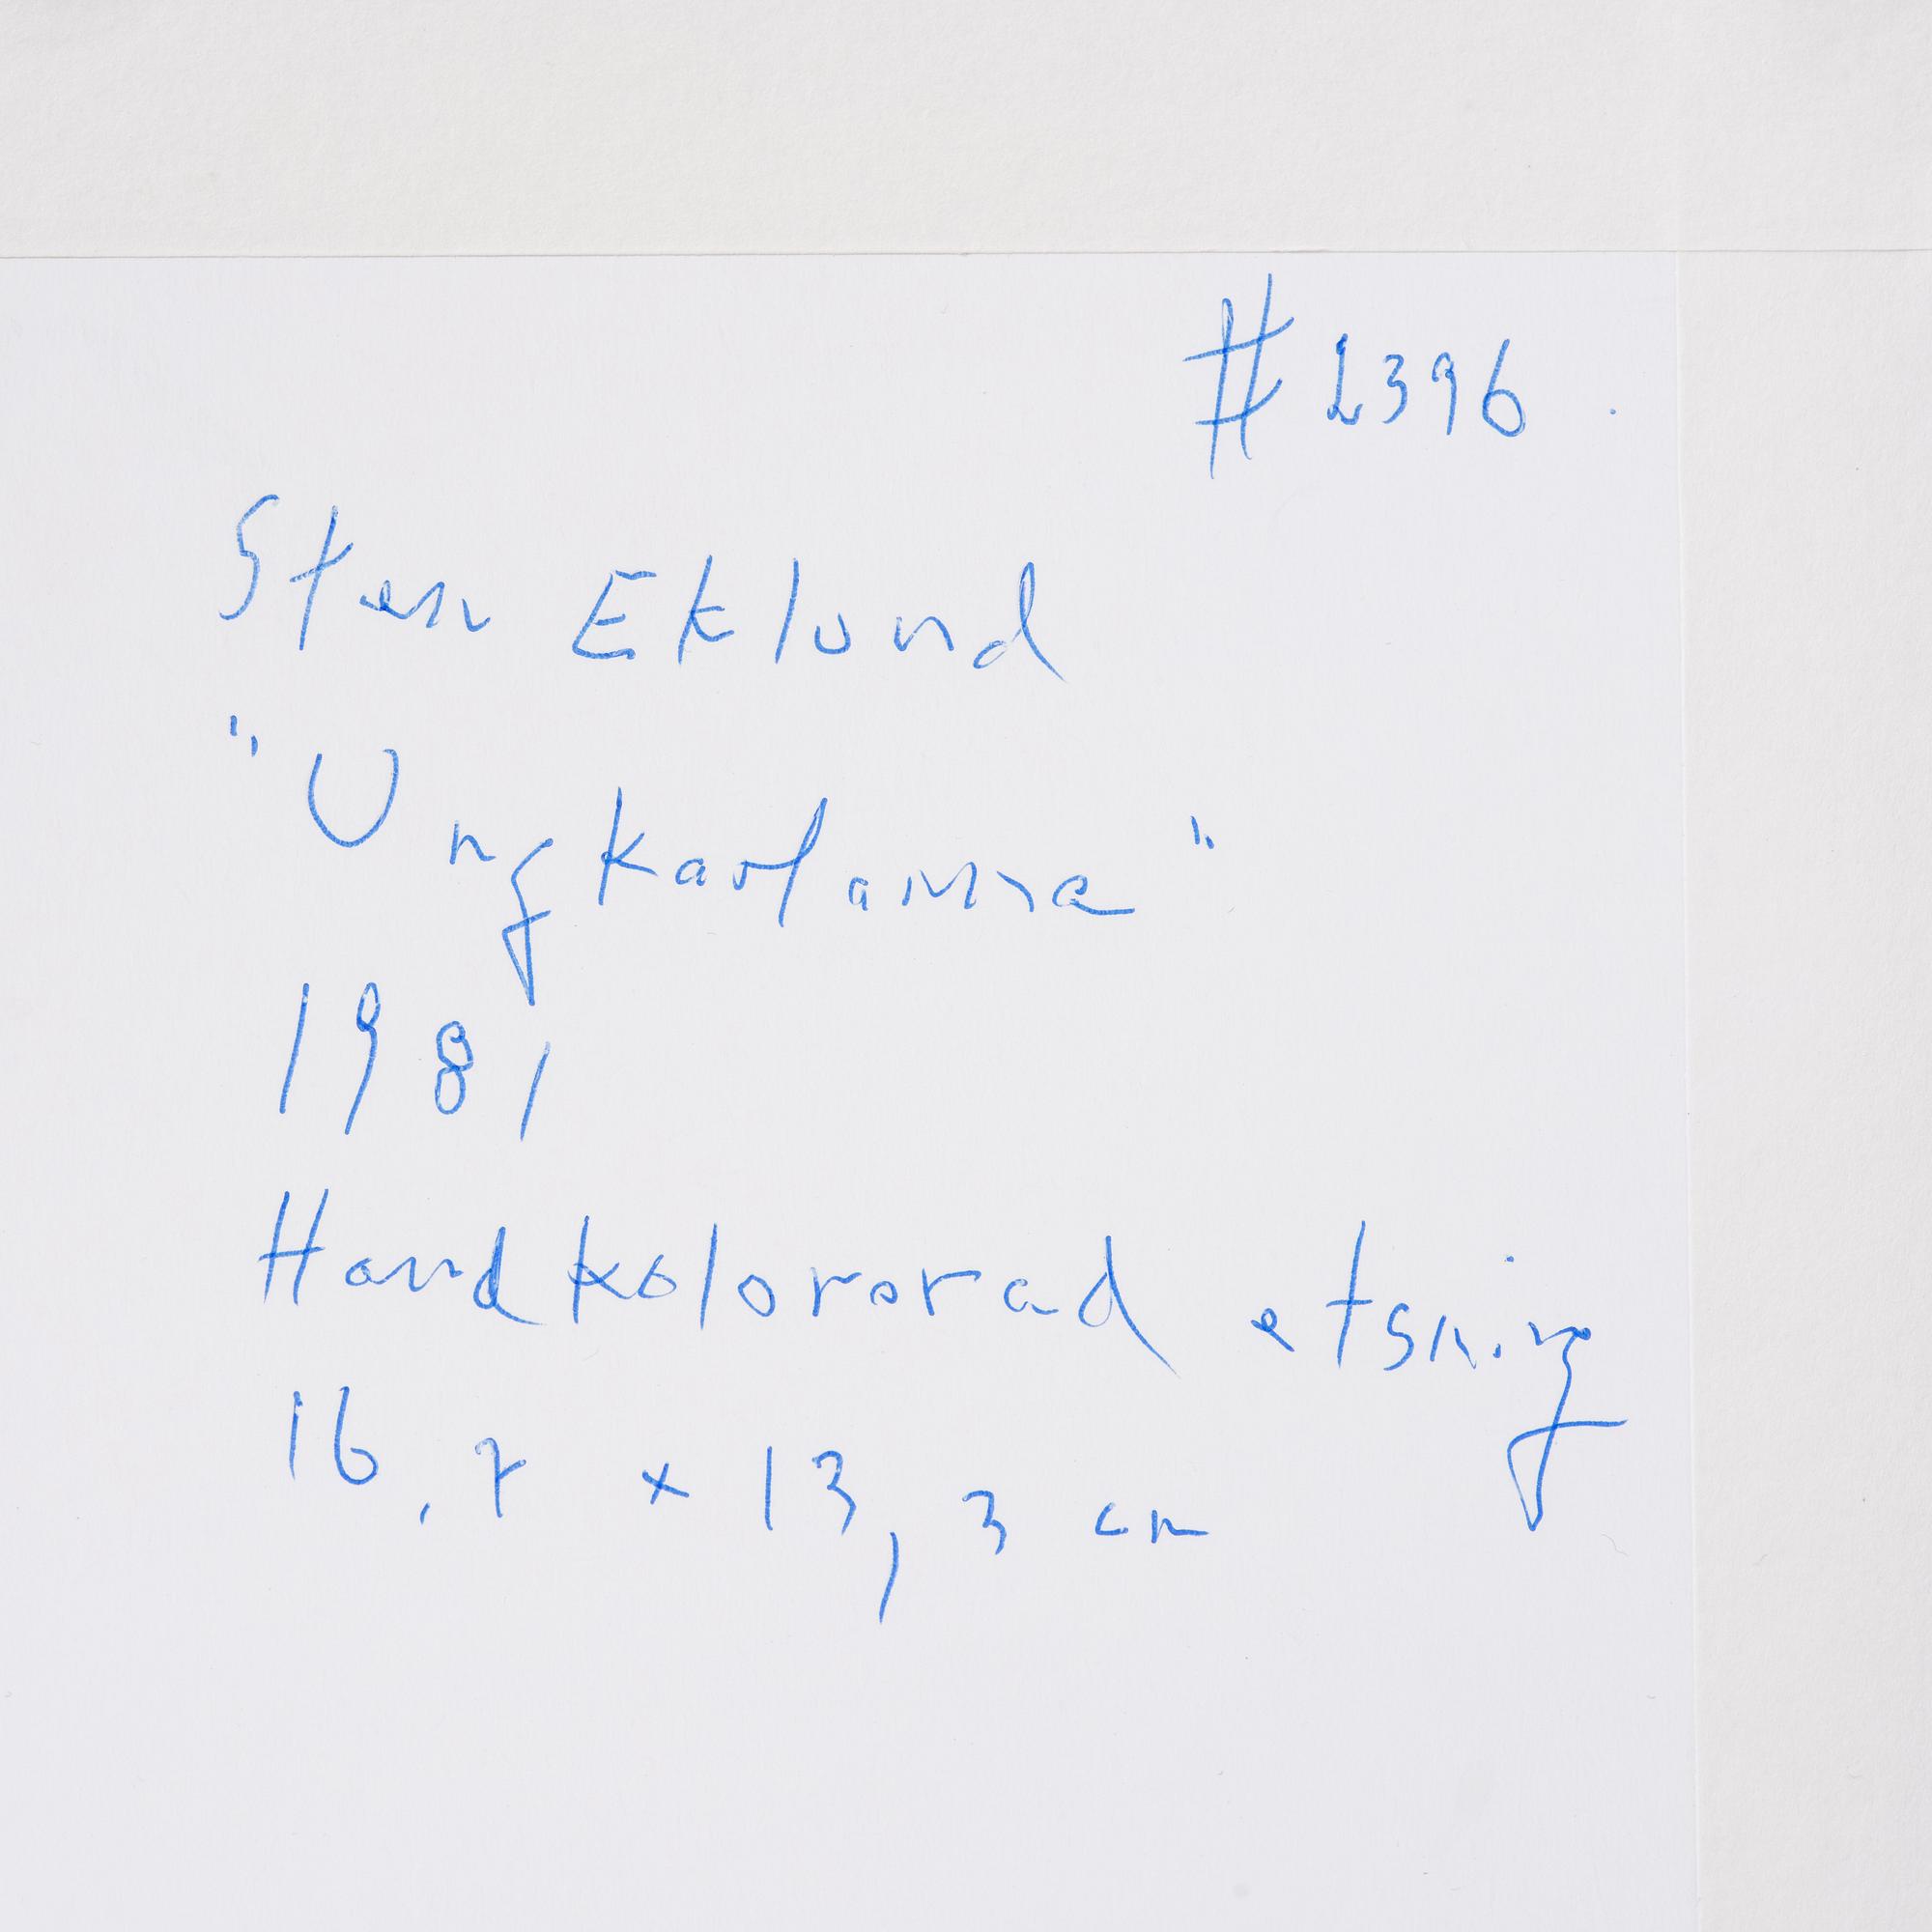 #2396
Sten Eklund
"Ungkarlarna"
1981
Handkolorerad etsning
16,7 x 13,3 cm